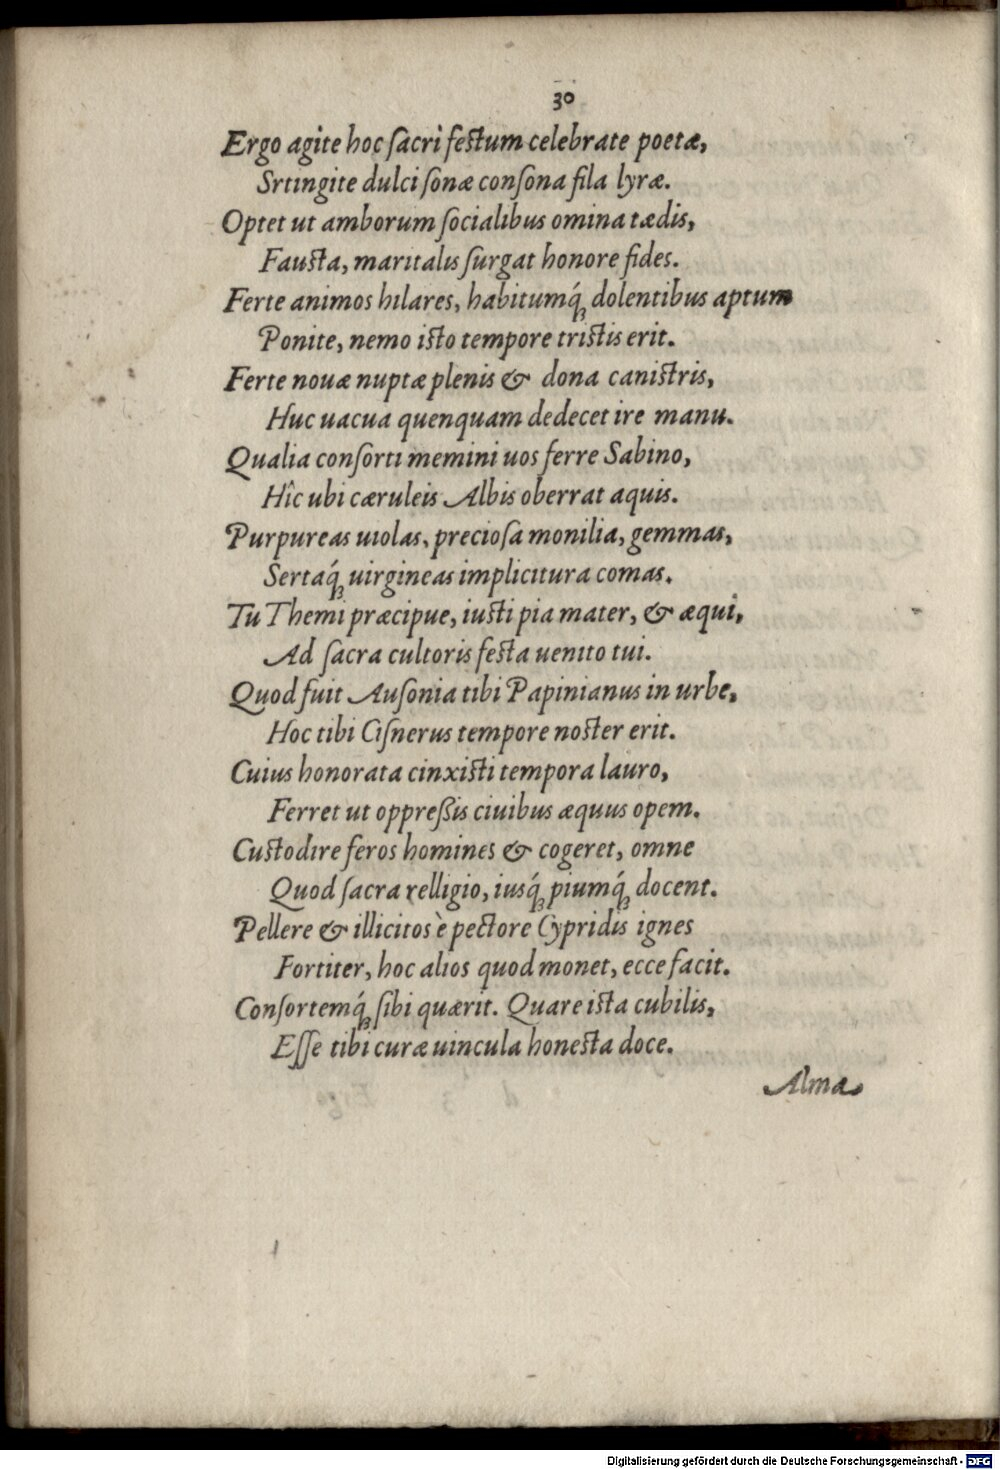 30
Ergo agite hoc ſacri feſtum celebrate poetæ,
Srtingite dulci ſonæ conſona fila lyræ.
Optet ut amborum ſocialibus omina tædis,
Fauſta, maritalis ſurgat honore fides.
Ferte animos hilares, habitumq́; dolentibus aptum
Ponite, nemo iſto tempore triſtis erit.
Ferte nouæ nuptæ plenis & dona caniſtris,
Huc uacua quenquam dedecet ire manu.
Qualia conſorti memini uos ferre Sabino,
Hîc ubi cæruleis Albis oberrat aquis.
Purpureas uiolas, precioſa monilia, gemmas,
Sertaq́; uirgineas implicitura comas.
Tu Themi præcipue, iuſti pia mater, & æqui,
Ad ſacra cultoris feſta uenito tui.
Quod fuit Auſonia tibi Papinianus in urbe,
Hoc tibi Ciſnerus tempore noſter erit.
Cuius honorata cinxiſti tempora lauro,
Ferret ut oppreßis ciuibus æquus opem.
Cuſtodire feros homines & cogeret, omne
Quod ſacra relligio, iusq́; piumq́; docent.
Pellere & illicitos è pectore Cypridis ignes
Fortiter, hoc alios quod monet, ecce facit.
Conſortemq́; ſibi quærit. Quare iſta cubilis,
Eſſe tibi curæ uincula honeſta doce.
Alma
Digitalisierung gefördert durch die Deutsche Forschungsgemeinschaft - DFG